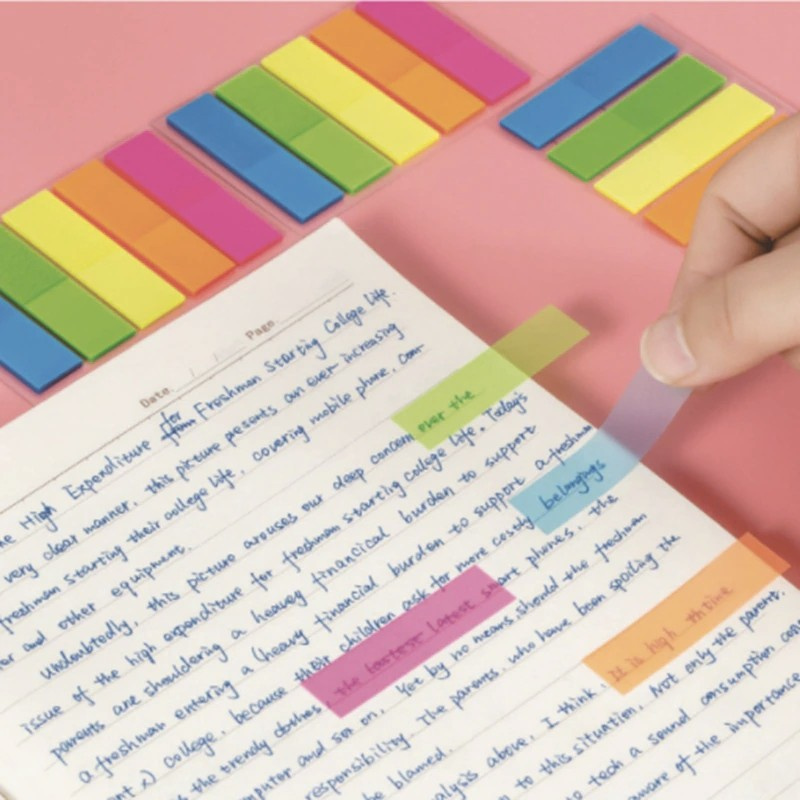 Date. / / Page.
High Expenditure for Freshman Starting College Life.
very clear manner, this picture pesents an ever increasing
freshman starting their college life, covering mobile phone, com-
er and other equipment.
Undoubtedly, this picture arouses our deep concern over the
issue of the high expenditure for freshman starting college life. Today's
parents are shouldering a heavy financical burden to support
a freshman entering a (heavy financial burden to support a freshman
college, because their children ask for more costly belongings
the trendy clothes, the lastest latest smart phones, the
mputer and so on. Yet by no means should the freshman
responsibility. The parents, who have been spoiling the
be blamed.
alysis above, I think, It is high th time
to this situation. Not only the parent.
to tech a sound consumption con
aware of the importance